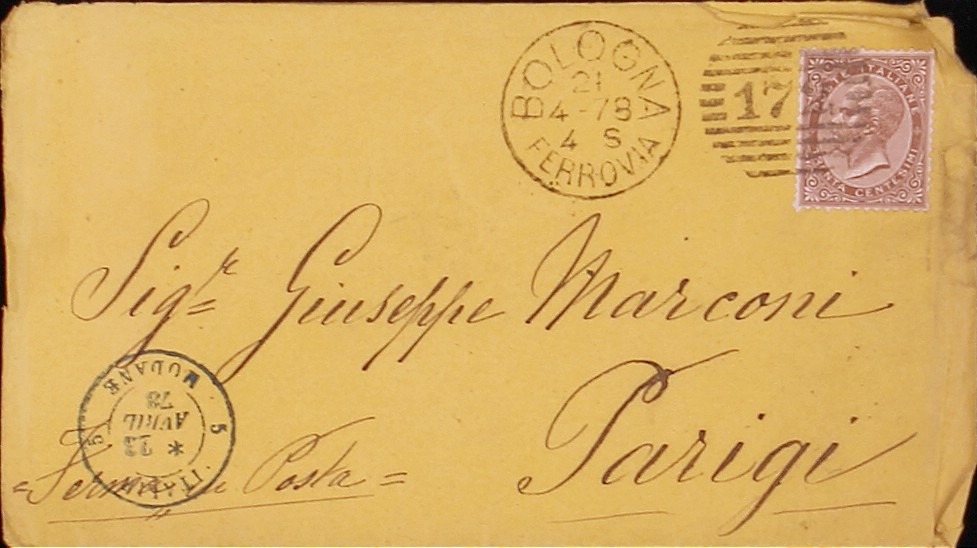 BOLOGNA
21
4-78
4 S
FERROVIA
17
POSTE ITALIANE
TRENTA CENTESIMI
Sigr Giuseppe Marconi
Parigi
=Ferma in Posta=
ITALIE
5 * 23 5
AVRIL
78
MODANE